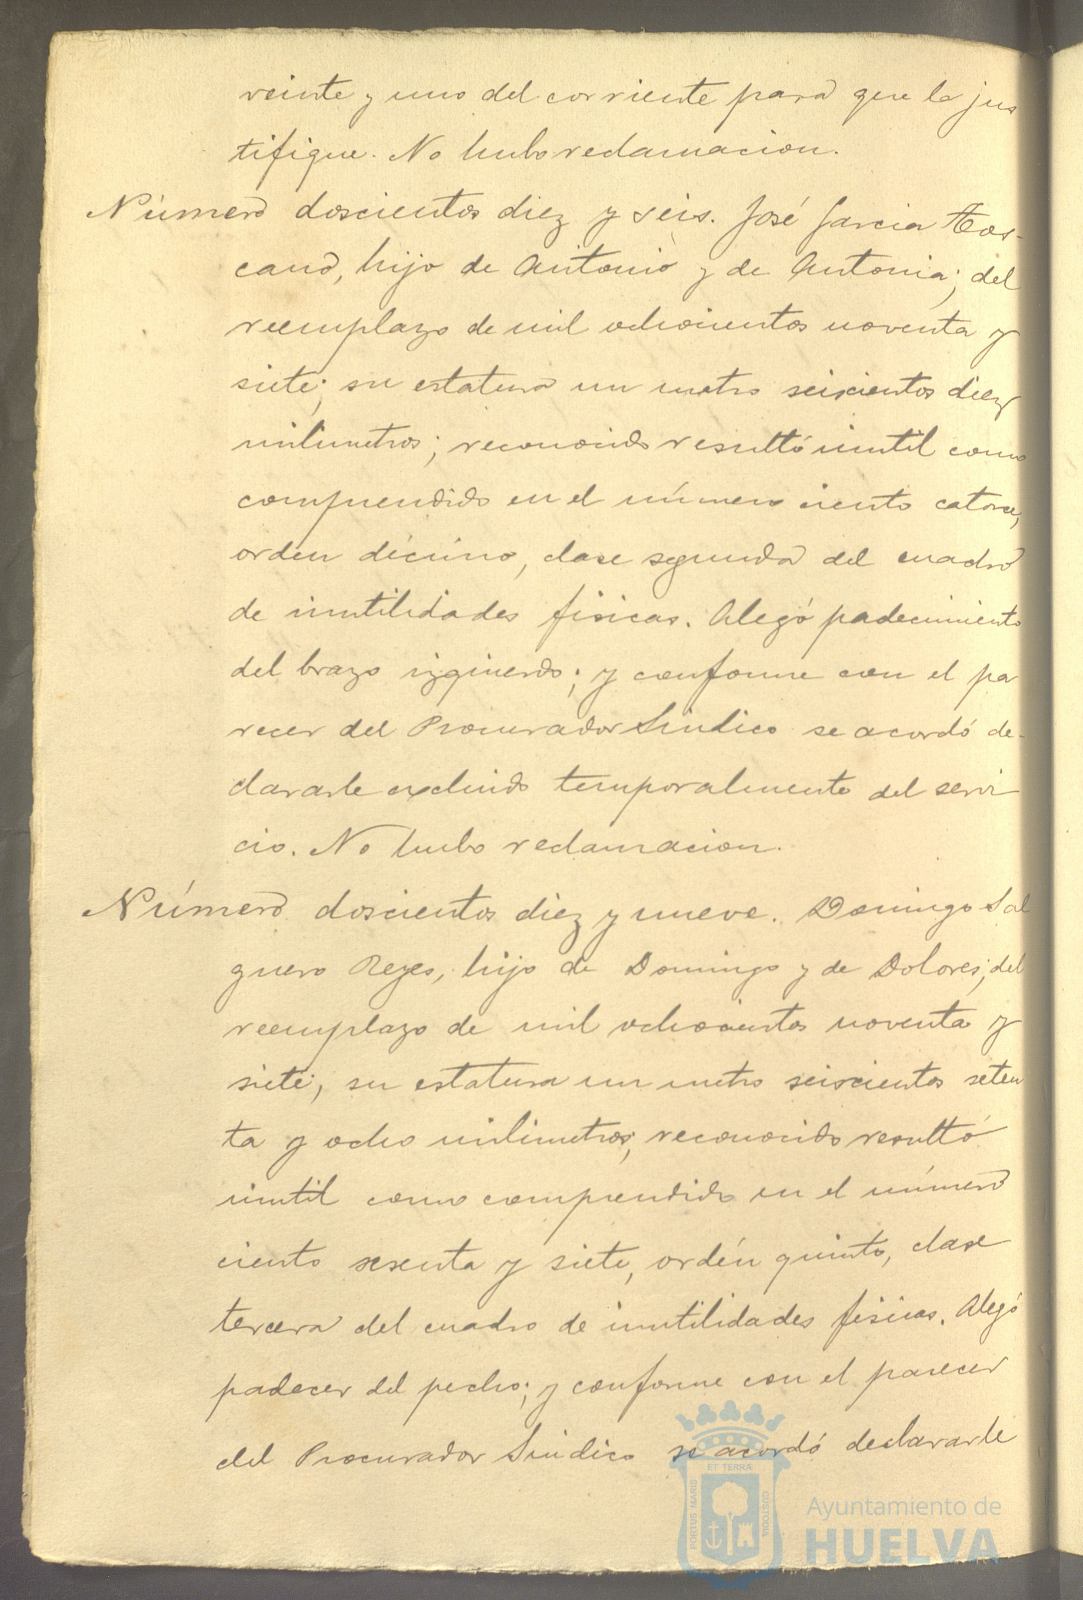 veinte y uno del corriente para que lo jus
tifique. No hubo reclamacion.
Número doscientos diez y seis. José Garcia Tos-
cano, hijo de Antonio y de Antonia; del
reemplazo de mil ochocientos noventa y
siete; su estatura un metro seiscientos diez
milimetros; reconocido resultó inutil como
comprendido en el número ciento catorce,
orden décimo, clase segunda del cuadro
de inutilidades fisicas. Alegó padecimiento
del brazo izquierdo; y conforme con el pa
recer del Procurador Sindico se acordó de-
clararle excluido temporalmente del servi
cio. No hubo reclamacion.
Número doscientos diez y nueve. Domingo Sal
guero Reyes, hijo de Domingo y de Dolores; del
reemplazo de mil ochocientos noventa y
siete; su estatura un metro seiscientos seten
ta y ocho milimetros; reconocido resultó
inutil como comprendido en el número
ciento sesenta y siete, ordén quinto, clase
tercera del cuadro de inutilidades fisicas. Alegó
padecer del pecho; y conforme con el parecer
del Procurador Sindico se acordó declararle
PORTUS MARIS ET TERRAE CUSTODIA
Ayuntamiento de
HUELVA